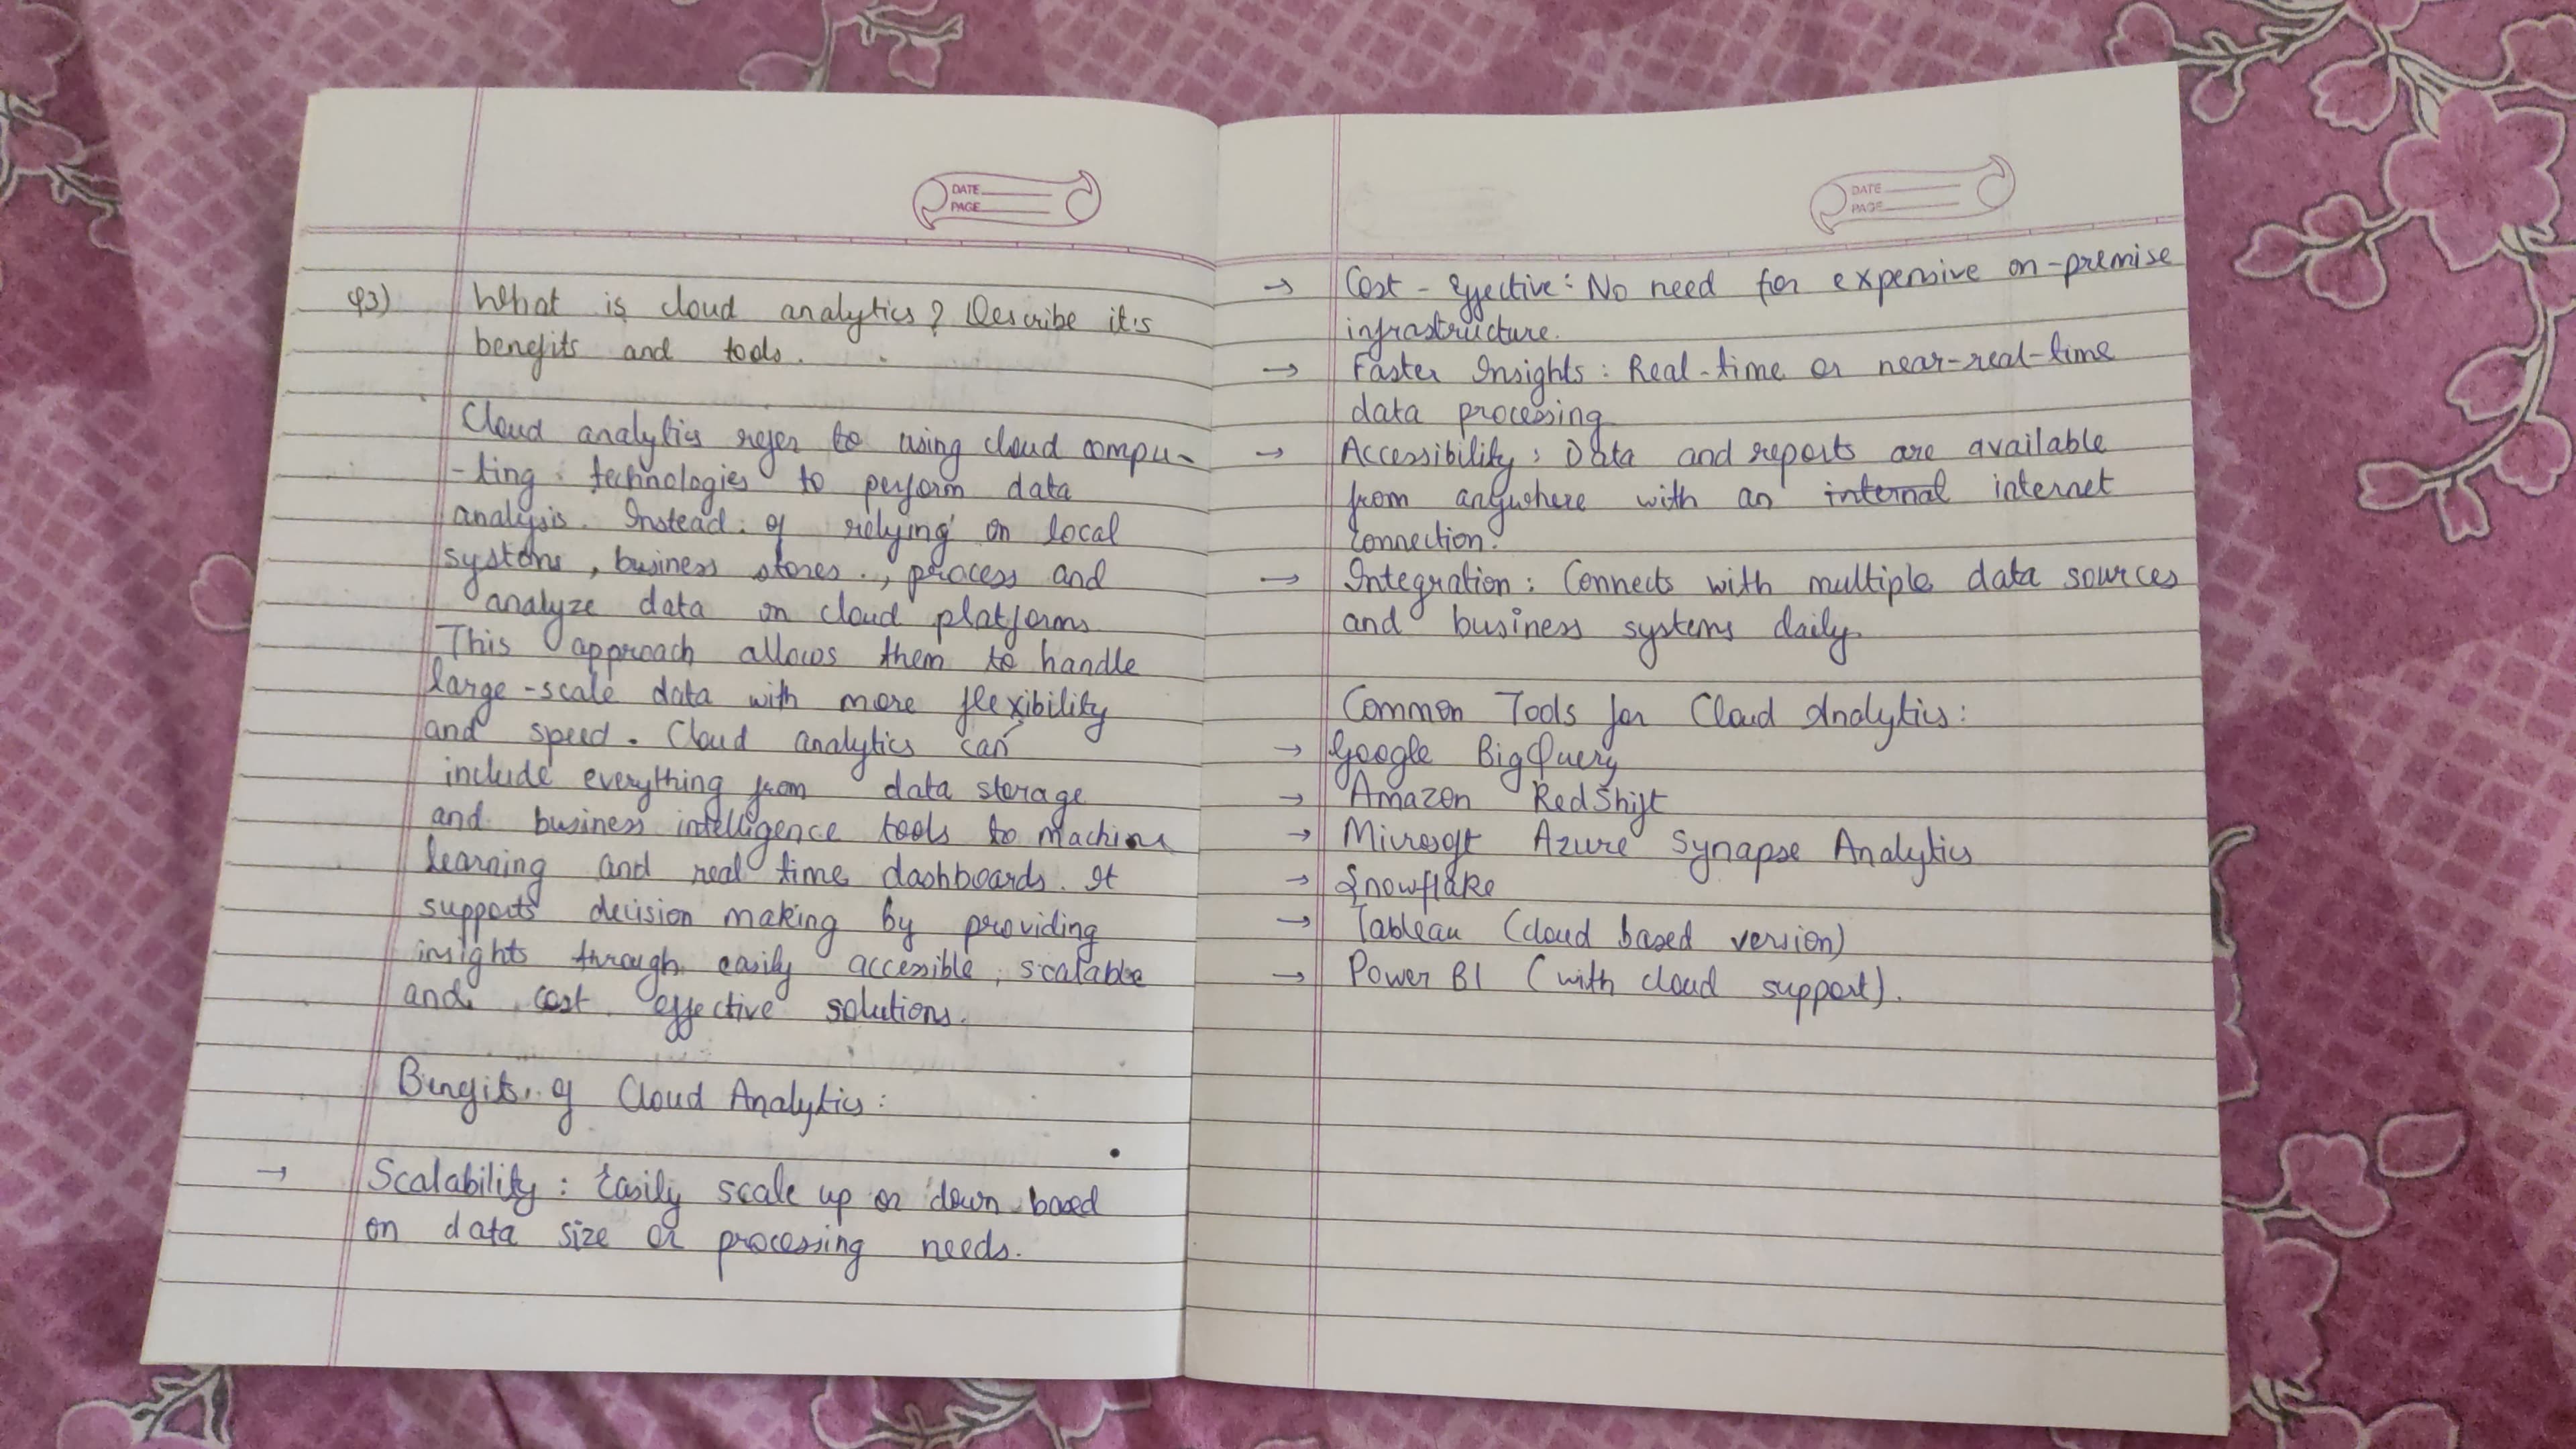 DATE
PAGE
Q3) What is cloud analytics? Describe it's
benefits and tools.
Cloud analytics refer to using cloud compu-
-ting technologies to perform data
analysis. Instead of relying on local
systems, business stores, process and
analyze data on cloud platforms
This approach allows them to handle
large-scale data with more flexibility
and speed. Cloud analytics can
include everything from data storage
and business intelligence tools to machine
learning and real time dashboards. It
supports decision making by providing
insights through easily accessible, scalable
and cost effective solutions.
Benefits of Cloud Analytics:
→ Scalability: Easily scale up or down based
on data size or processing needs.
DATE
PAGE
→ Cost-Effective: No need for expensive on-premise
infrastructure.
→ Faster Insights: Real-time or near-real-time
data processing
→ Accessibility: Data and reports are available
from anywhere with an internal internet
connection.
→ Integration: Connects with multiple data sources
and business systems daily.
Common Tools for Cloud Analytics:
→ Google BigQuery
→ Amazon RedShift
→ Microsoft Azure Synapse Analytics
→ Snowflake
→ Tableau (cloud based version)
→ Power BI (with cloud support).